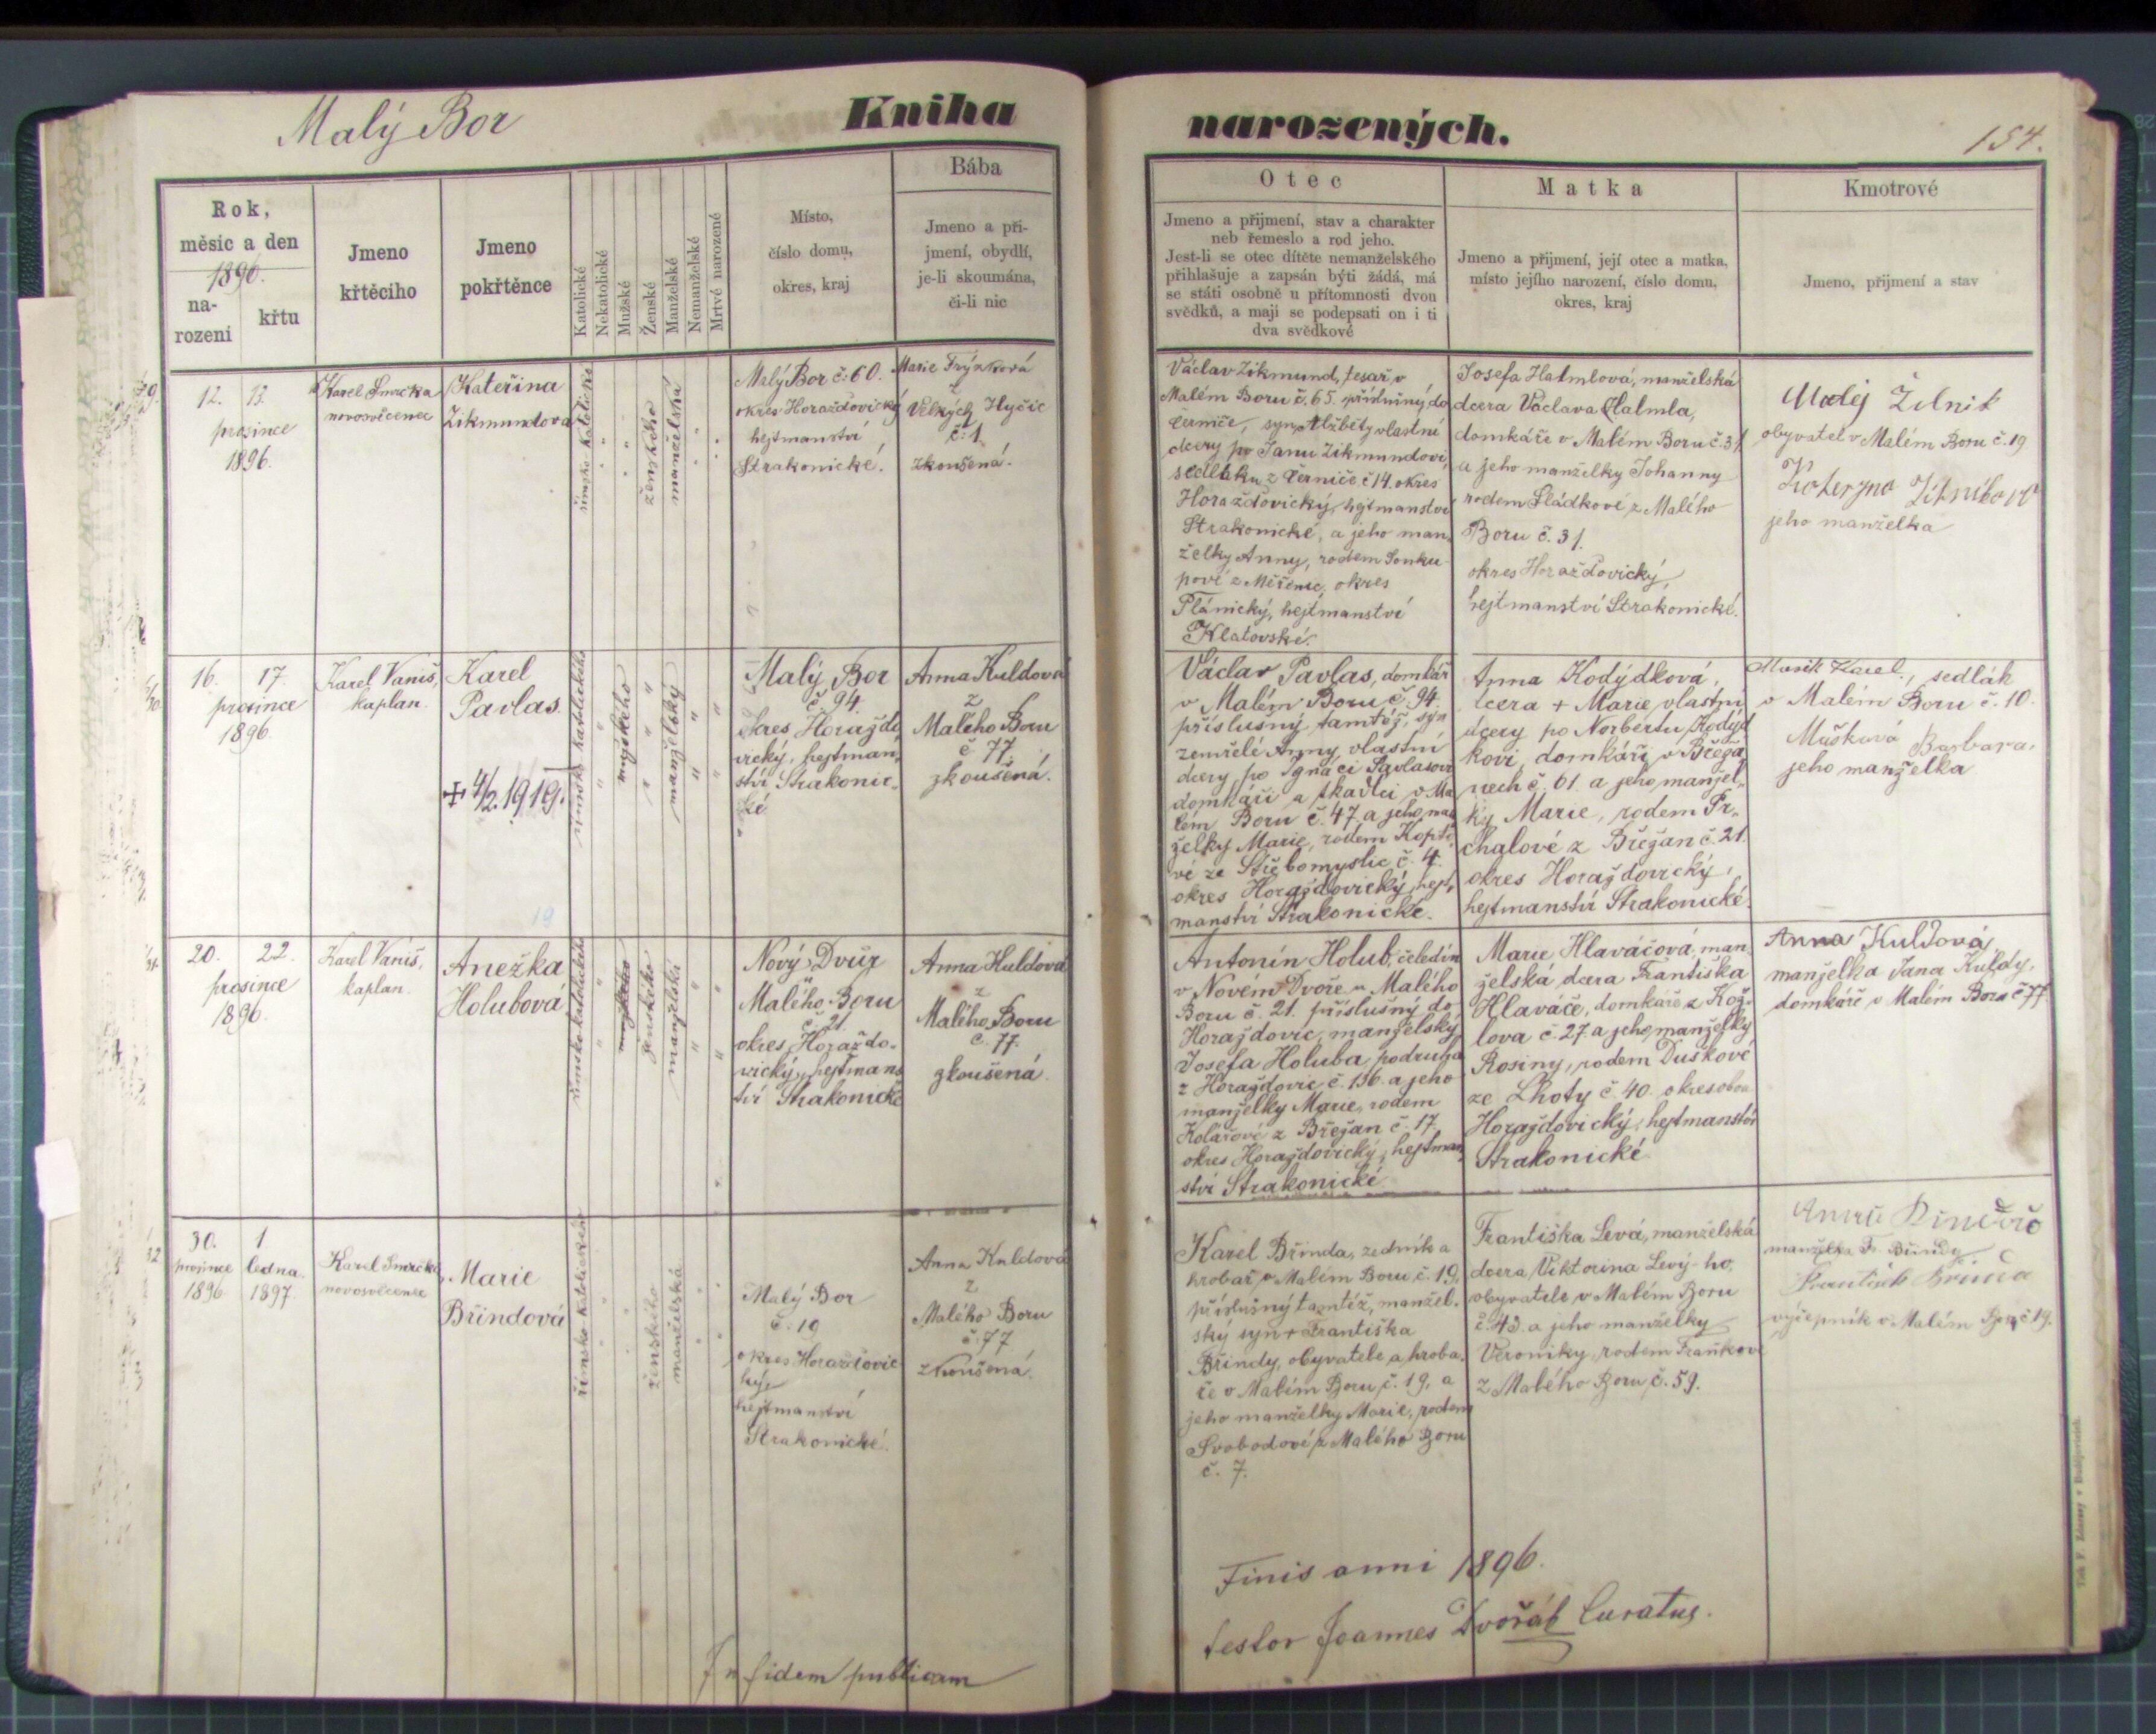 Malý Bor
Kniha
narozených.
154.
Rok,
měsíc a den
1896.
na-
rození
křtu
Jmeno
křtěcího
Jmeno
pokřtěnce
Katolické
Nekatolické
Mužské
Ženské
Manželské
Nemanželské
Mrtvě narozené
Místo,
číslo domu,
okres, kraj
Bába
Jmeno a při-
jmení, obydlí,
je-li skoumána,
či-li nic
Otec
Jmeno a přijmení, stav a charakter
neb řemeslo a rod jeho.
Jest-li se otec dítěte nemanželského
přihlašuje a zapsán býti žádá, má
se státi osobně u přítomnosti dvou
svědků, a mají se podepsati on i ti
dva svědkové
Matka
Jmeno a přijmení, její otec a matka,
místo jejího narození, číslo domu,
okres, kraj
Kmotrové
Jmeno, přijmení a stav
12. 13.
prosince
1896.
Karel Smrčka
novosvěcenec
Kateřina
Zikmundova
římsko-katolické
ženského
manželská
Malý Bor č: 60.
okres Horažďovický
hejtmanství
Strakonické.
Marie Frýzková
z
Velkých Hyčic
č: 1
zkoušená.
Václav Zikmund, tesař v
Malém Boru č. 65. příslušný do
Černiče, syn Alžběty vlastní
dcery po Janu Zikmundovi,
sedláku z Černiče č 14. okres
Horažďovický, hejtmanství
Strakonické, a jeho man,
želky Anny, rodem Soukupové
z okres
Plánický, hejtmanství
Klatovské.
Josefa Halmlová, manželská
dcera Václava Halmla,
domkáře v Malém Boru č. 31
a jeho manželky Johanny
rodem Sládkové z Malého
Boru č. 31.
okres Horažďovický,
hejtmanství Strakonické.
Matěj
obyvatel v Malém Boru č. 19
jeho manželka
16. 17.
prosince
1896
Karel Vaniš,
kaplan.
Karel
Pavlas
+ 4/2. 1919.
římsko katolického
mužského
manželský
Malý Bor
č. 94.
okres Horažďo
vický, hejtman,
ství Strakonic,
ké
Anna Kuldová
z
Malého Boru
č 77.
zkoušená.
Václav Pavlas, domkář
v Malém Boru č. 94.
příslušný tamtéž, syn
zemřelé Anny, vlastní
dcery po Ignáci Pavlasovi
domkáři a tkalci v Ma
lém Boru č. 47 a jeho man
želky Marie, rodem Kopto
vé ze Střebomyslic č. 4.
okres Horažďovický, hejt,
manství Strakonické.
Anna Kodýdková,
dcera + Marie vlastní
dcery po Norbertu Kodýd
kovi, domkáři v Břeža
nech č. 61. a jeho manžel,
ky Marie, rodem Pr,
chalové z Břežan č. 21.
okres Horažďovický,
hejtmanství Strakonické.
Mušk Karel, sedlák
v Malém Boru č. 10.
Mušková Barbara,
jeho manželka
20. 22.
prosince
1896.
Karel Vaniš,
kaplan.
Anežka
Holubová
římsko katolického
mužského
ženského
manželské
Nový Dvůr
u
Malého Boru
č. 21.
okres Horažďo,
vický, hejtman,
ství Strakonické
Anna Kuldová
z
Malého Boru
č. 77.
zkoušená.
Antonín Holub, čeledín
v Novém Dvoře u Malého
Boru č. 21. příslušný do
Horažďovic, manželský
Josefa Holuba, podruha
z Horažďovic č. 136. a jeho
manželky Marie, rodem
Kolářové z Břežan č. 17.
okres Horažďovický, hejtman,
ství Strakonické
Marie Hlaváčová, man,
želská dcera Františka
Hlaváče, domkáře z Kož,
lova č. 27. a jeho manželky
Rosiny, rodem Duškové
ze Lhoty č. 40. okres obou
Horažďovický, hejtmanství
Strakonické.
Anna Kuldová,
manželka Jana Kuldy,
domkáře v Malém Boru č 77.
30. 1.
prosince ledna
1896 1897.
Karel Smrčka,
novosvěcenec
Marie
Břindová
římsko-katolického
ženského
manželská
Malý Bor
č: 19
okres Horažďovic
ký,
hejtmanství
Strakonické.
Anna Kuldová
z
Malého Boru
č: 77
zkoušená.
Karel Břinda, zedník a
hrobař v Malém Boru, č. 19,
příslušný tamtéž, manžel.
ský syn + Františka
Břindy, obyvatele a hroba,
ře v Malém Boru, č. 19, a
jeho manželky Marie, rodem
Svobodové z Malého Boru
č. 7.
Františka Levá, manželská
dcera Viktorina Levý-ho,
obyvatele v Malém Boru
č. 43. a jeho manželky
Veroniky, rodem Fraňkové
z Malého Boru, č. 59.
manželka Fr. Břindy
František Břinda
výčepník v Malém Boru, č 19.
Finis anni 1896.
In fidem publicam
testor Joannes Dvořák Curatus.